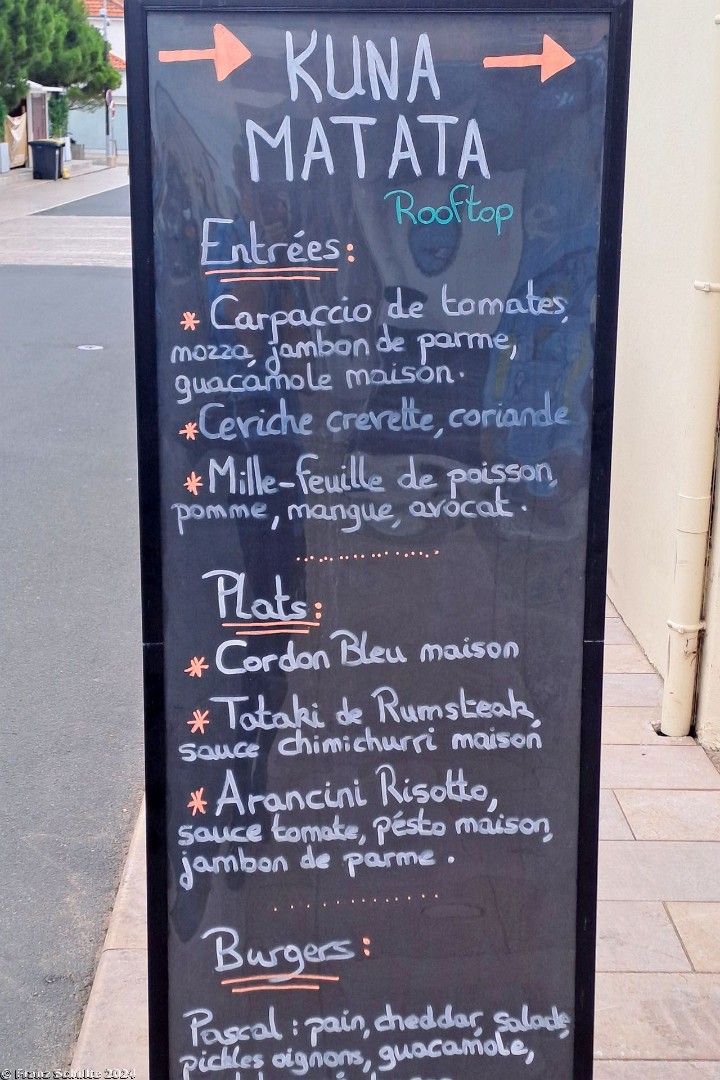 KUNA
MATATA
Rooftop
Entrées:
* Carpaccio de tomates,
mozza, jambon de parme,
guacamole maison.
* Ceviche crevette, coriande
* Mille-feuille de poisson,
pomme, mangue, avocat.
Plats:
* Cordon Bleu maison
* Tataki de Rumsteak,
sauce chimichurri maison
* Arancini Risotto,
sauce tomate, pésto maison,
jambon de parme.
Burgers:
Pascal: pain, cheddar, salade,
pickles oignons, guacamole,
© Franz Schulte 2024